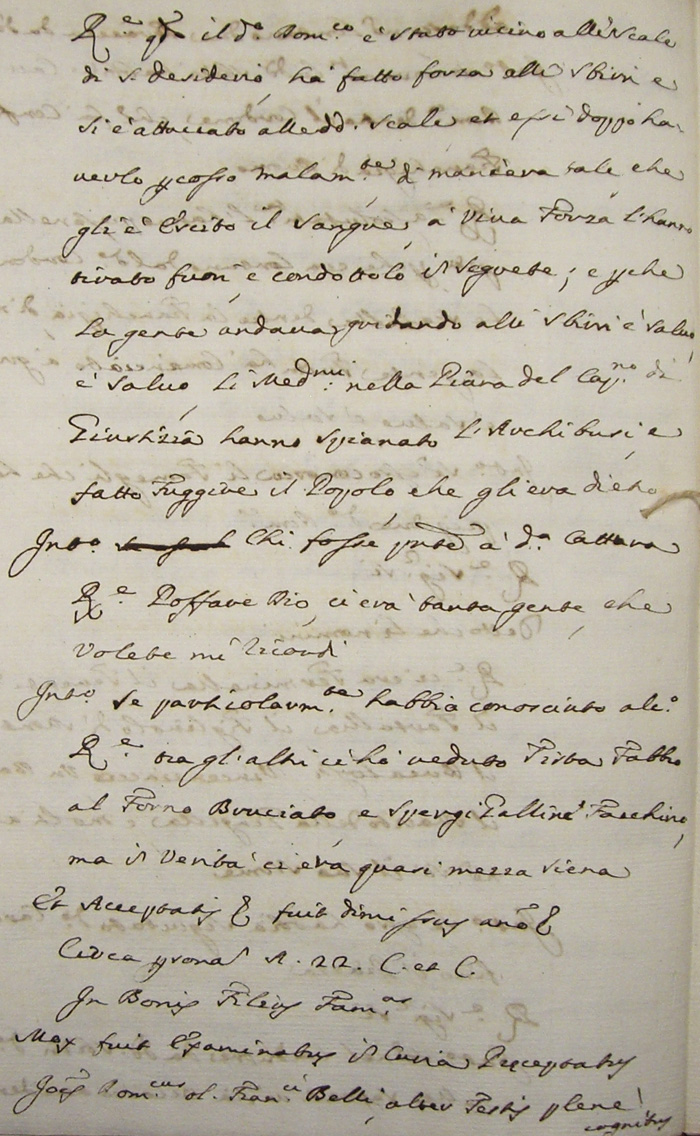 R.e qdo il d.o Dom.co è stato vicino alle scale
di S. Desiderio, ha fatto forza alli sbirri e
si è attaccato alle dd. scale et essi doppo ha-
verlo pcosso malam.te di maniera tale che
gli è escito il sangue, à viva forza l'hanno
tirato fuori e condottolo in segrete; e pche
la gente andava gridando alli sbirri è salvo,
è salvo li Med.mi nella Piazza del Cap.no di
Giustizia hanno spianato l'Archibusi e
fatto fuggire il Popolo che gli era dietro
Int.o Chi fosse pnte à d.a Cattura
R.e Poffare Dio, ci era tanta gente, che
volete mi ricordi
Int.o Se particolarm.te habbia conosciuto alc.o
R.e tra gl'altri ci hò veduto Titta Fabbro
al Forno Bruciato e Spergi Galline Facchino,
ma in verità ci era quasi mezza Siena
Et Acceptatis fuit dimissus ano
Circa psona A. 22. C. et C.
In Bonis Filius Fam.as
Mox fuit Examinatus in Curia Preceptatus
Jac.s Dom.cus ol. Fran.ci Belli, alter Testis plene
cognitus